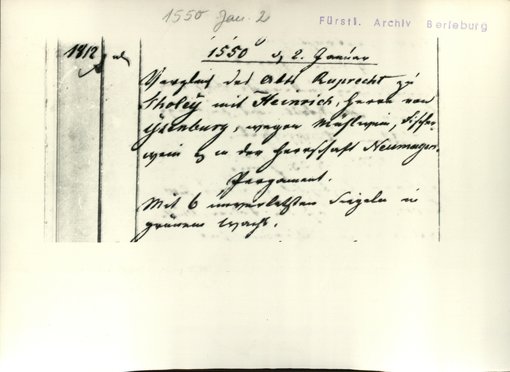 1550 Jan. 2
Fürstl. Archiv Berleburg
1912
1550 d 2. Januar
Vergleich des Abts Ruprecht zu
Tholey mit Heinrich, Herrn von
Ysenburg, wegen Mühlwein, Fischer
wein in der Herrschaft Neumagen.
Pergament.
Mit 6 unverletzten Siegeln in
grünem Wachs.